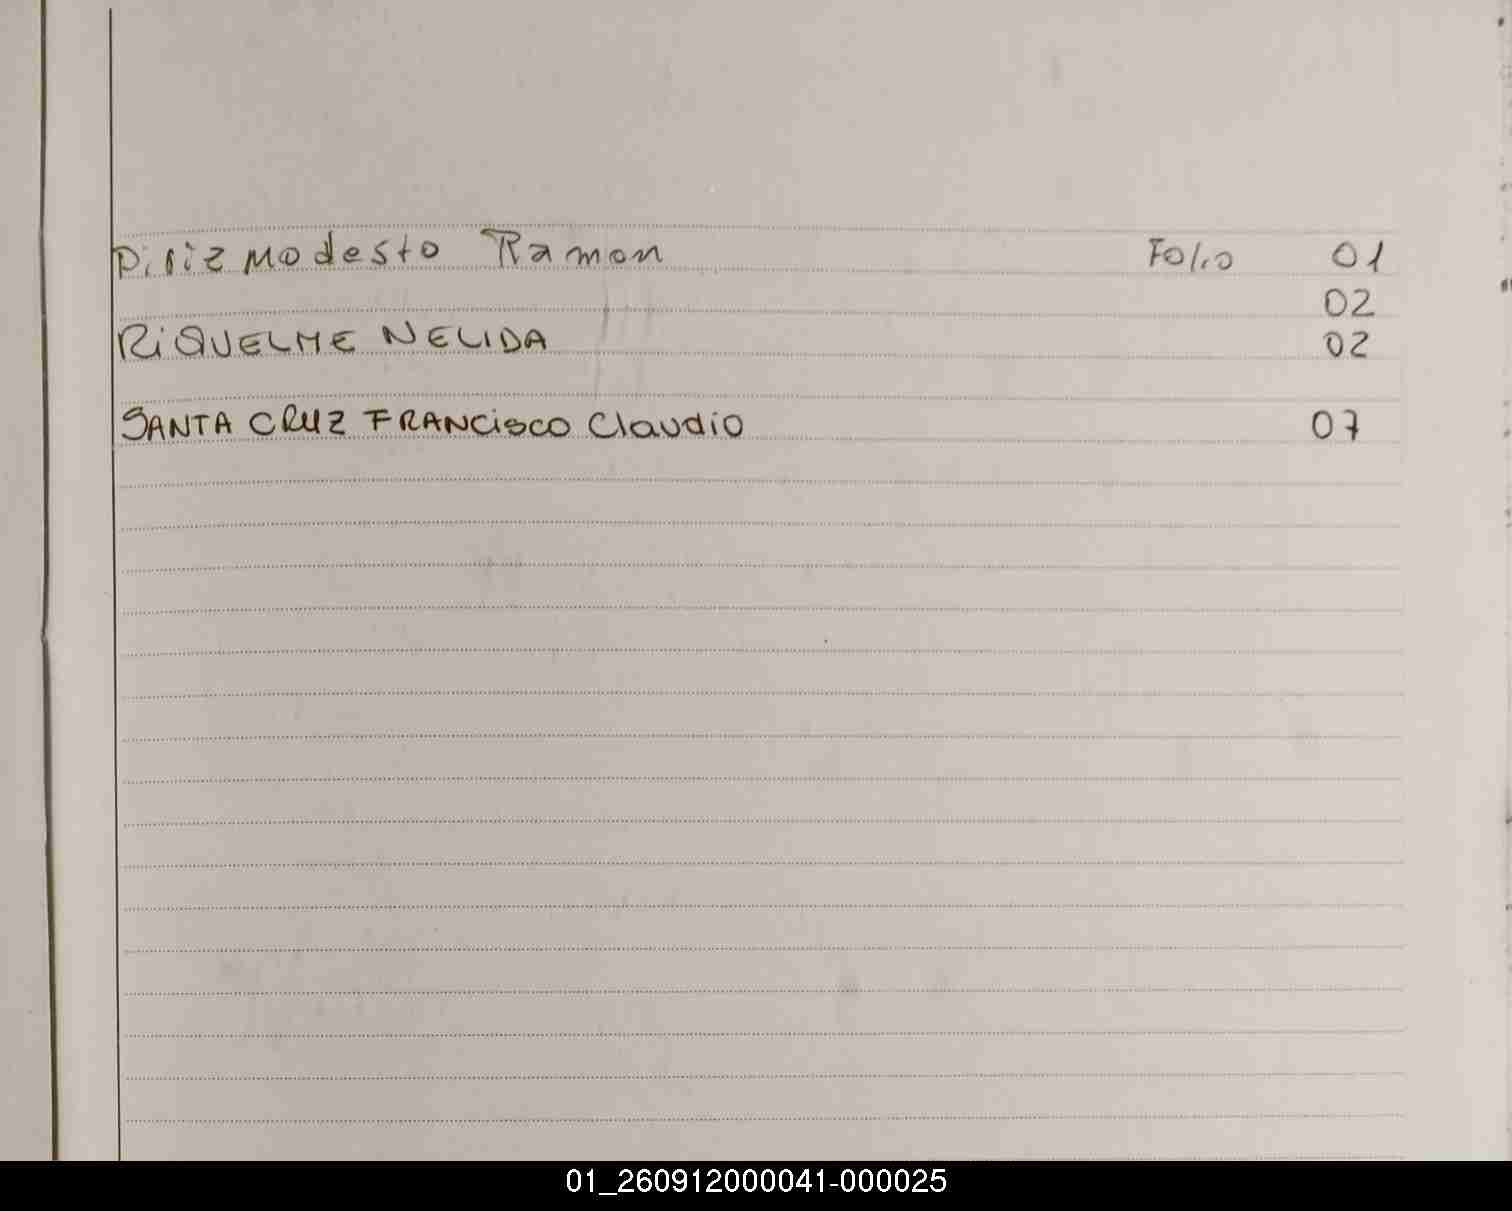 Piriz Modesto Ramon Folio 01
02
RiQUELME NELIDA 02
SANTA CRUZ FRANCisco Claudio 07
01_260912000041-000025